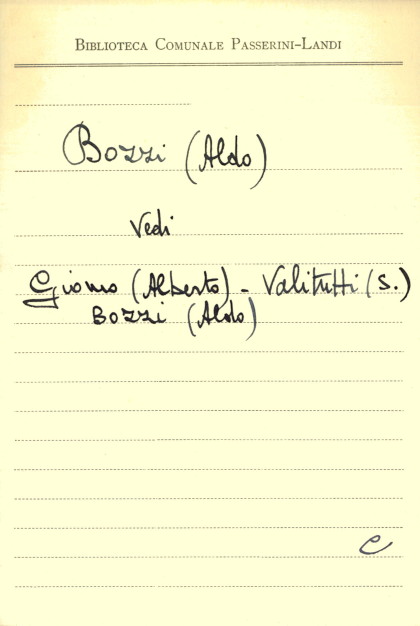 BIBLIOTECA COMUNALE PASSERINI-LANDI
Bozzi (Aldo)
Vedi
Giomo (Alberto) - Valitutti (S.)
Bozzi (Aldo)
C